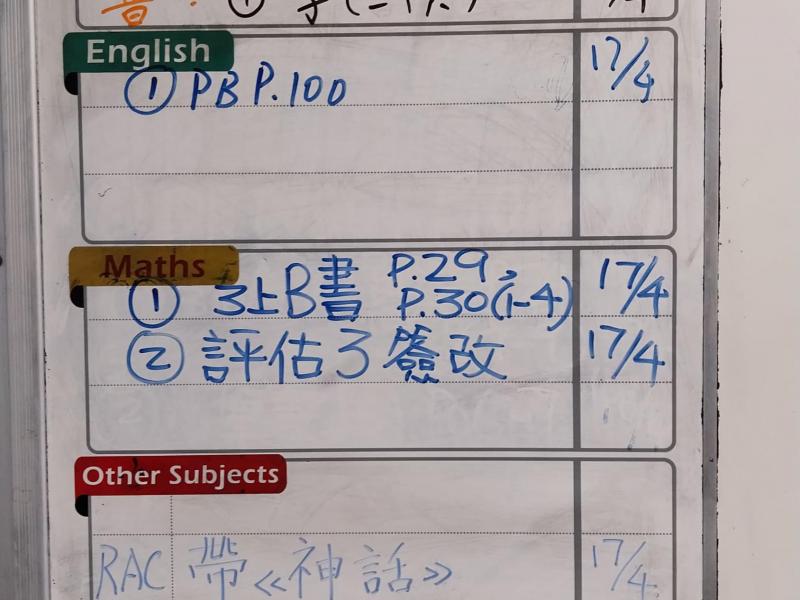 English
① PB P.100 17/4
Maths
① 3上B書 P.29, P.30(1-4) 17/4
② 評估3簽改 17/4
Other Subjects
RAC 帶《神話》 17/4